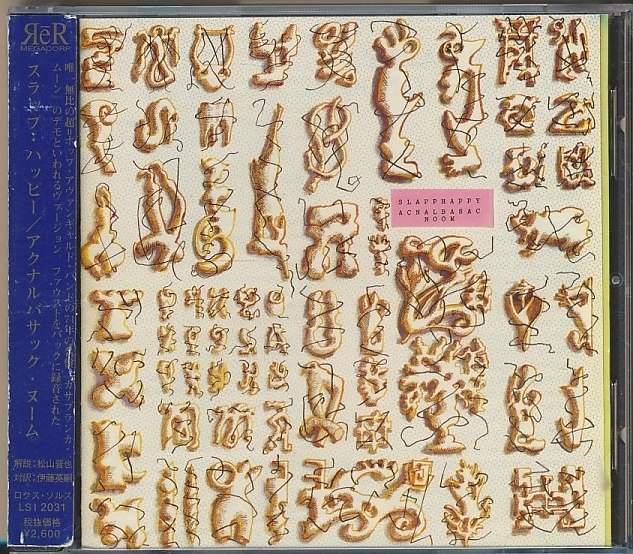 ЯēR
MEGACORP
唯一無比の超ポップ・アヴァンギャルド・バンドの
ムーン」のデモといわれるヴァージョン。ファウストをバックに録音された
スラップ・ハッピー/アクナルバサック・ヌーム
解説:松山晋也
対訳:伊藤英嗣
ロクス・ソルス
LSI 2031
税抜価格
¥2,600
SLAPPHAPPY
ACNALBASAC
NOOM